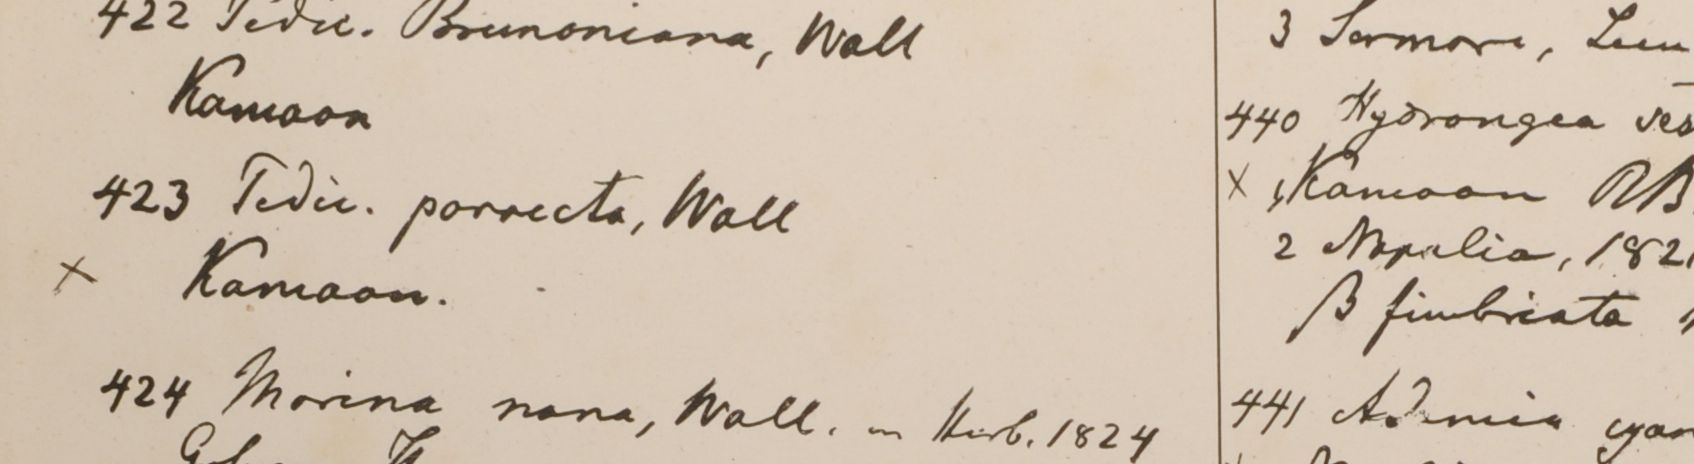 422 Pedic. Brunoniana, Wall
Kamaon
423 Pedic. porrecta, Wall
x Kamaon.
424 Morina nana, Wall. in Herb. 1824
3 Sermore,
440 Hydrangea ves
x 1, Kamaon RB
2 Napalia, 182
β fimbriata
441 Adamia cyan